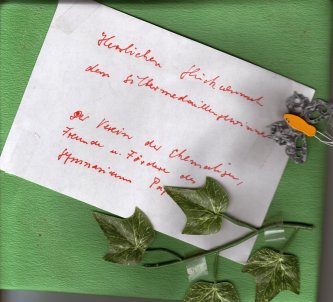 Herzlichen Glückwunsch
dem Silbermedaillengewinner
Der Verein der Ehemaligen,
Freunde u. Förderer des
Gymnasiums